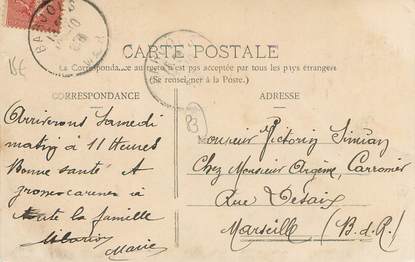 CARTE POSTALE
La Correspondance au recto n'est pas acceptée par tous les pays étrangers
(Se renseigner à la Poste.)
CORRESPONDANCE
ADRESSE
Arriverons Samedi
matin à 11 Heures
Bonne santé et
à
toute la famille
Marie
Monsieur Victorin
Chez Monsieur Carrossier
Rue Desaix
Marseille (B.d.R.)